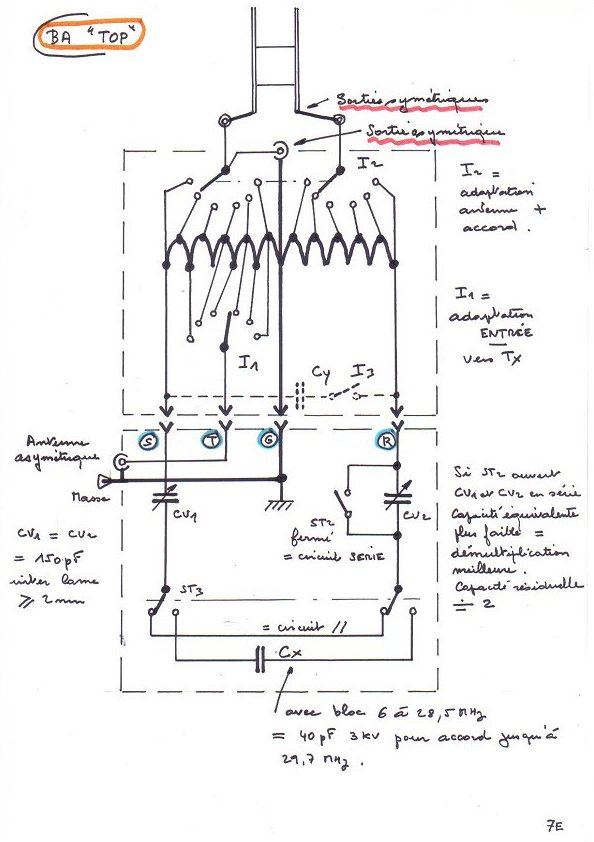 BA "TOP"
Sorties symétriques
Sortie asymétrique
I2
I2 =
adaptation
antenne +
accord.
I1 =
adaptation
ENTRÉE
vers Tx
I1
Cy
I3
S
T
G
R
Antenne
asymétrique
Masse
CV1
CV2
ST2
fermé
= circuit SERIE
CV1 = CV2
= 150 pF
inter lame
⩾ 2 mm
Si ST2 ouvert
CV1 et CV2 en série
Capacité équivalente
plus faible =
démultiplication
meilleure.
Capacité résiduelle
÷ 2
ST3
= circuit //
Cx
avec bloc 6 à 28,5 MHz
= 40 pF 3 kV pour accord jusqu'à
29,7 MHz.
7E